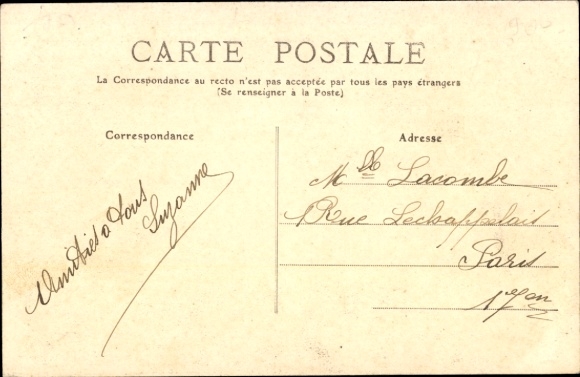 CARTE POSTALE
La Correspondance au recto n'est pas acceptée par tous les pays étrangers
(Se renseigner à la Poste)
Correspondance
Amitiés à tous
Suzanne
Adresse
Mlle Lacombe
1 Rue Lechappelais
Paris
17en